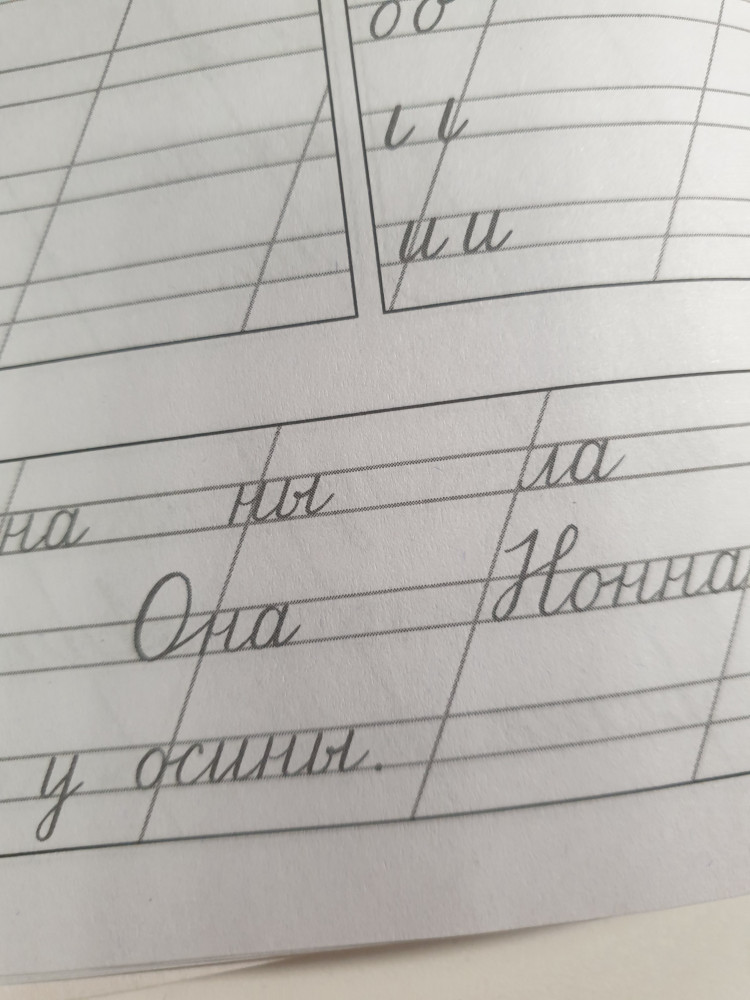 оо
и и
на ны ла
Она Нонна
у осины.